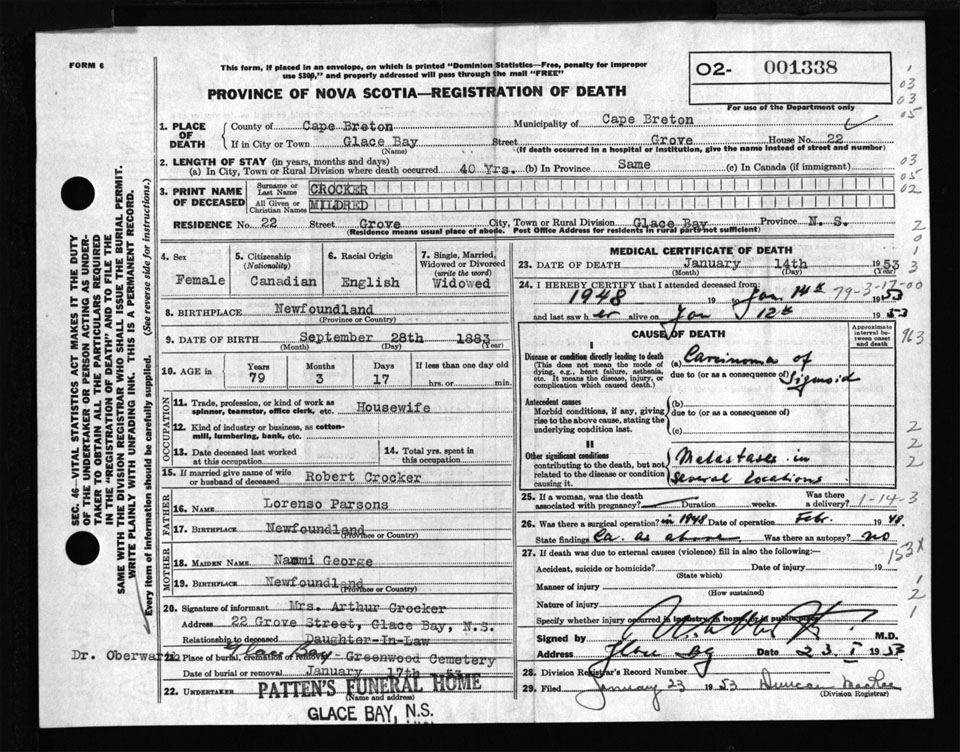 FORM 6
This form, if placed in an envelope, on which is printed "Dominion Statistics—Free, penalty for improper
use $300," and properly addressed will pass through the mail "FREE"
PROVINCE OF NOVA SCOTIA—REGISTRATION OF DEATH
O2- 001338
For use of the Department only
1. PLACE OF DEATH
County of Cape Breton Municipality of Cape Breton
If in City or Town Glace Bay Street Grove House No. 22
(Name) (If death occurred in a hospital or institution, give the name instead of street and number)
2. LENGTH OF STAY (in years, months and days)
(a) In City, Town or Rural Division where death occurred 40 Yrs. (b) In Province Same (c) In Canada (if immigrant)
3. PRINT NAME OF DECEASED
Surname or Last Name CROCKER
All Given or Christian Names MILDRED
RESIDENCE No. 22 Street Grove City, Town or Rural Division Glace Bay Province N. S.
(Residence means usual place of abode. Post Office Address for residents in rural parts not sufficient)
4. Sex Female
5. Citizenship (Nationality) Canadian
6. Racial Origin English
7. Single, Married, Widowed or Divorced (write the word) Widowed
8. BIRTHPLACE Newfoundland
(Province or Country)
9. DATE OF BIRTH September 28th 1883
(Month) (Day) (Year)
10. AGE in Years 79 Months 3 Days 17 If less than one day old
hrs. or min.
OCCUPATION
11. Trade, profession, or kind of work as
spinner, teamster, office clerk, etc. Housewife
12. Kind of industry or business, as cotton-
mill, lumbering, bank, etc.
13. Date deceased last worked
at this occupation
14. Total yrs. spent in
this occupation
15. If married give name of wife
or husband of deceased Robert Crocker
FATHER
16. NAME Lorenso Parsons
17. BIRTHPLACE Newfoundland
(Province or Country)
MOTHER
18. MAIDEN NAME Naomi George
19. BIRTHPLACE Newfoundland
(Province or Country)
20. Signature of informant Mrs. Arthur Crocker
Address 22 Grove Street, Glace Bay, N.S.
Relationship to deceased Daughter-In-Law
Dr. Oberwarth
21. Place of burial, cremation or removal Glace Bay - Greenwood Cemetery
Date of burial or removal January 17th 53
22. UNDERTAKER PATTEN'S FUNERAL HOME
(Name and address)
GLACE BAY, N.S.
MEDICAL CERTIFICATE OF DEATH
23. DATE OF DEATH January 14th 1953
(Month) (Day) (Year)
24. I HEREBY CERTIFY that I attended deceased from:
1948 19 to Jan 14th 1953
79-3-17-00
and last saw her alive on Jan 12th 1953
CAUSE OF DEATH
Approximate interval between onset and death
I
Disease or condition directly leading to death
(This does not mean the mode of
dying, e.g., heart failure, asthenia,
etc. It means the disease, injury, or
complication which caused death.)
(a) Carcinoma of
due to (or as a consequence of) Sigmoid
Antecedent causes
Morbid conditions, if any, giving
rise to the above cause, stating the
underlying condition last.
(b)
due to (or as a consequence of)
(c)
II
Other significant conditions
contributing to the death, but not
related to the disease or condition
causing it.
Metastases in
several locations
25. If a woman, was the death
associated with pregnancy? Duration weeks. Was there a delivery?
1-14-3
26. Was there surgical operation? in 1948 Date of operation Feb. 1948.
State findings Ca. as above Was there an autopsy? no
27. If death was due to external causes (violence) fill in also the following:—
Accident, suicide or homicide? Date of injury 19
(State which)
Manner of injury
(How sustained)
Nature of injury
Specify whether injury occurred in industry, in home, or in public place
Signed by M.D.
Address Glace Bay Date 23. I 1953
28. Division Registrar's Record Number
29. Filed January 23 1953 Duncan MacRae
(Division Registrar)
03
03
05
03
05
02
2
0
1
3
963
2
2
2
153X
1
2
1
SEC. 46—VITAL STATISTICS ACT MAKES IT THE DUTY
OF THE UNDERTAKER OR PERSON ACTING AS UNDER-
TAKER TO OBTAIN ALL THE PARTICULARS REQUIRED
IN THE "REGISTRATION OF DEATH" AND TO FILE THE
SAME WITH THE DIVISION REGISTRAR WHO SHALL ISSUE THE BURIAL PERMIT.
WRITE PLAINLY WITH UNFADING INK. THIS IS A PERMANENT RECORD.
Every item of information should be carefully supplied. (See reverse side for instructions.)